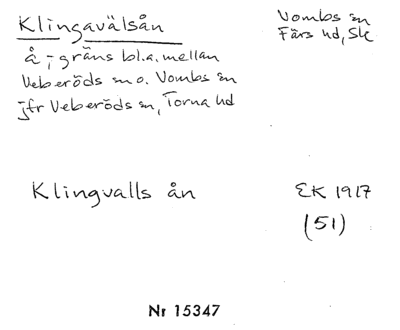 Klingavälsån
Vombs sn
Färs hd, Sk
å; gräns bl.a. mellan
Veberöds sn o. Vombs sn
jfr Veberöds sn, Torna hd
Klingvalls ån
EK 1917
(51)
Nr 15347